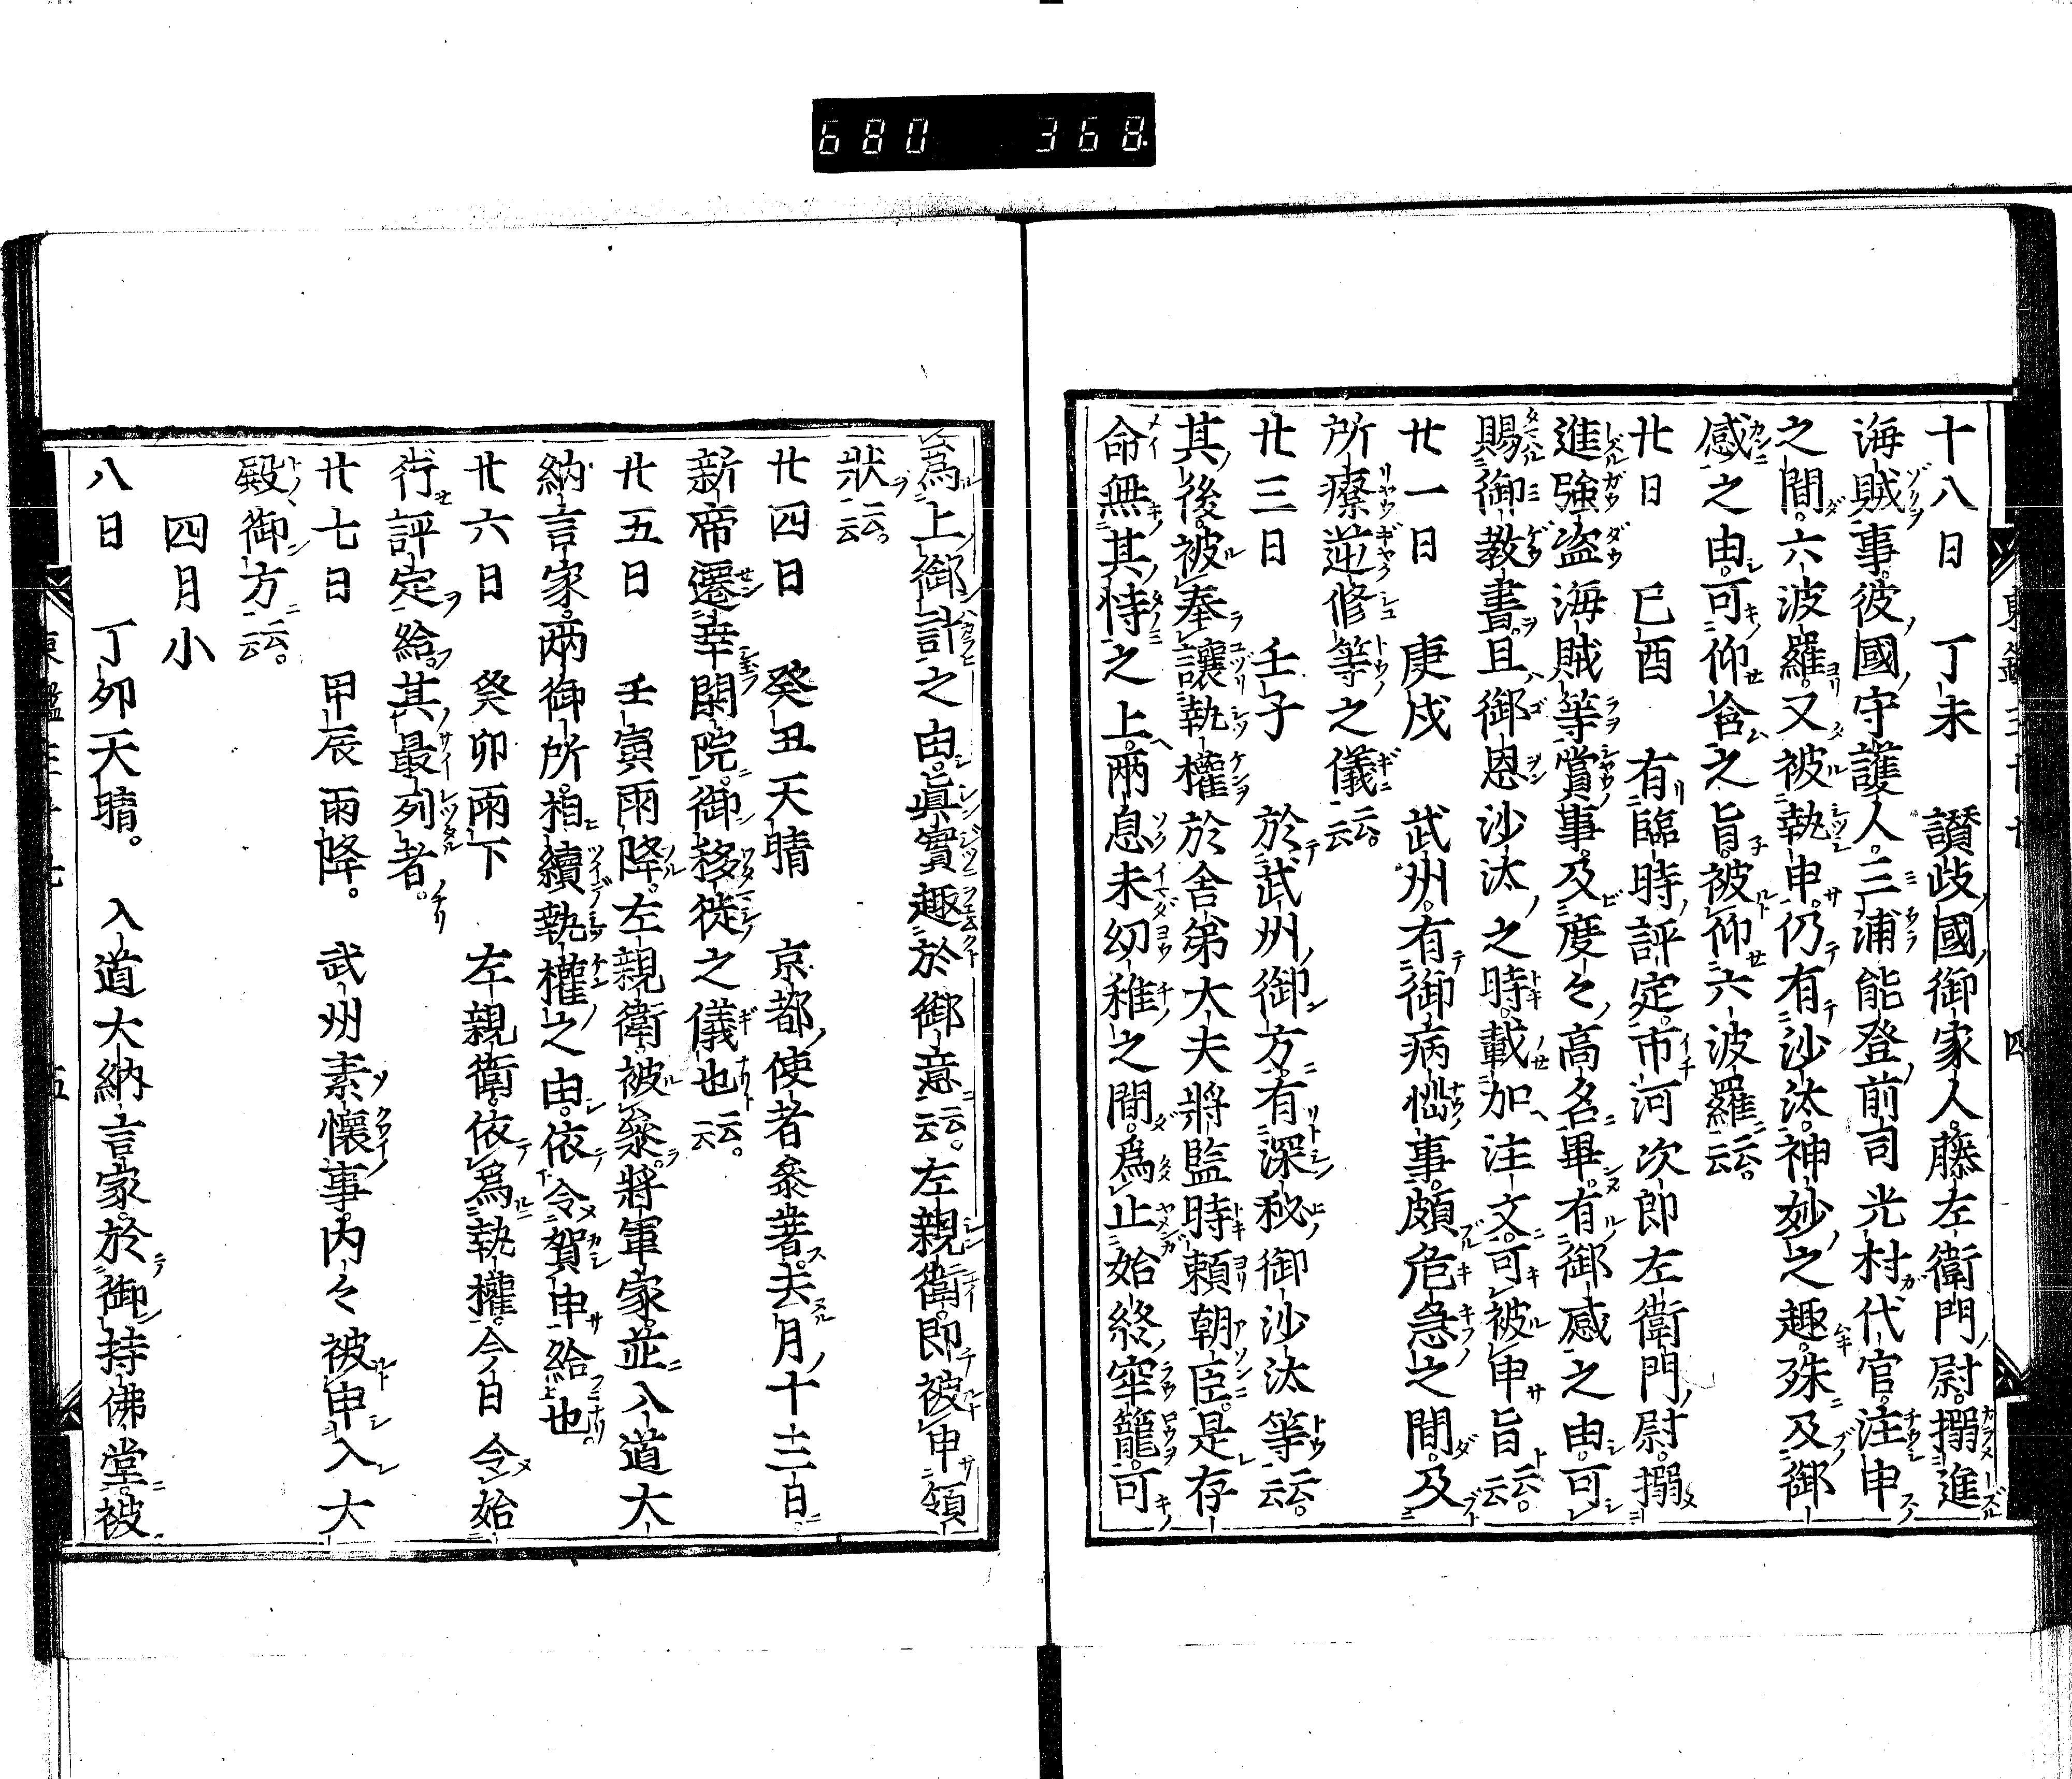 680 368
十八日 丁未 讃歧國御家人藤左衛門尉搦進
海賊事。彼國守護人三浦能登前司光村代官。注申
之間。六波羅又被執申。仍有沙汰。神妙之趣。殊及御
感之由。可仰含之旨。被仰六波羅云云。
廿日 已酉 有臨時評定。市河次郎左衛門尉。搦
進強盗海賊等賞事。及度々高名畢。有御感之由。可
賜御教書。且御恩沙汰之時。載加注文。可被申旨云云。
廿一日 庚戌 武州。有御病惱事。頗危急之間。及
所療逆修等之儀云云。
廿三日 壬子 於武州御方。有深秘御沙汰等云云。
其後。被奉讓執權於舎弟大夫將監時頼朝臣。是存
命無其恃之上。兩息未幼稚之間。爲止始終窂籠。可
爲上御計之由。眞實趣於御意云云。左親衛。即被申領
狀云云。
廿四日 癸丑天晴 京都使者叅著。去月十三日。
新帝遷幸閑院。御移徙之儀也云云。
廿五日 壬寅雨降。左親衛。被叅將軍家。並入道大
納言家。兩御所。相續執權之由。依令賀申給也。
廿六日 癸卯雨下 左親衛。依爲執權。今日令始
行評定給。其最列者。
廿七日 甲辰雨降。 武州素懷事。内々被申入大
殿御方云云。
四月小
八日 丁卯天晴。 入道大納言家。於御持佛堂。被
四
五